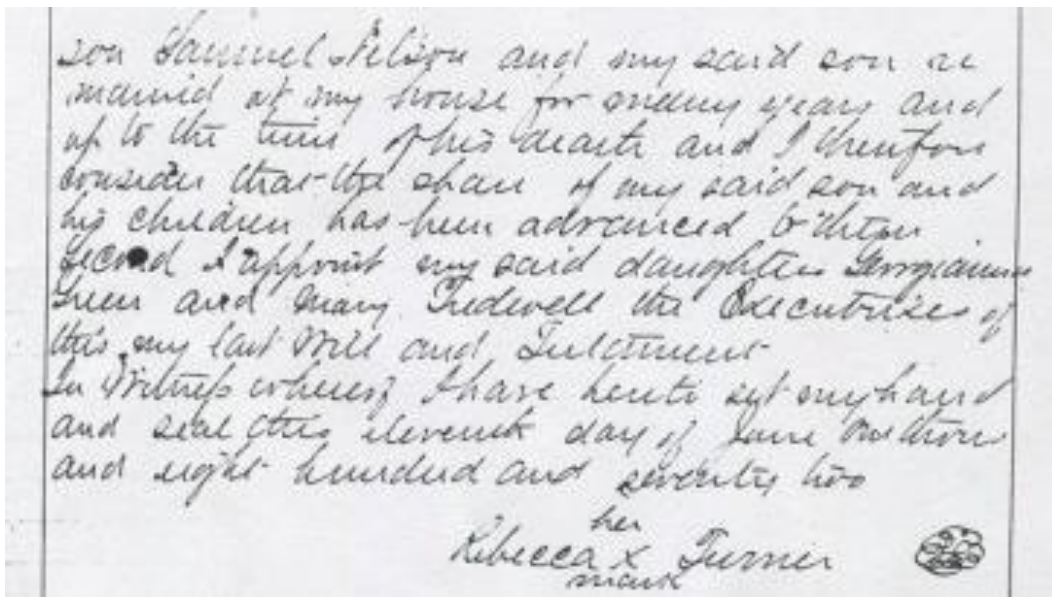 son Samuel Nelson and my said son re
mained at my house for many years and
up to the time of his death and I therefore
consider that the share of my said son and
his children has been advanced to them
Second I appoint my said daughters Georgianna
Green and Mary Tredwell the Executrixes of
this my last Will and Testament
In Witness whereof I have hereto set my hand
and seal this eleventh day of June One thous
and eight hundred and seventy two
her
Rebecca x Turner
mark